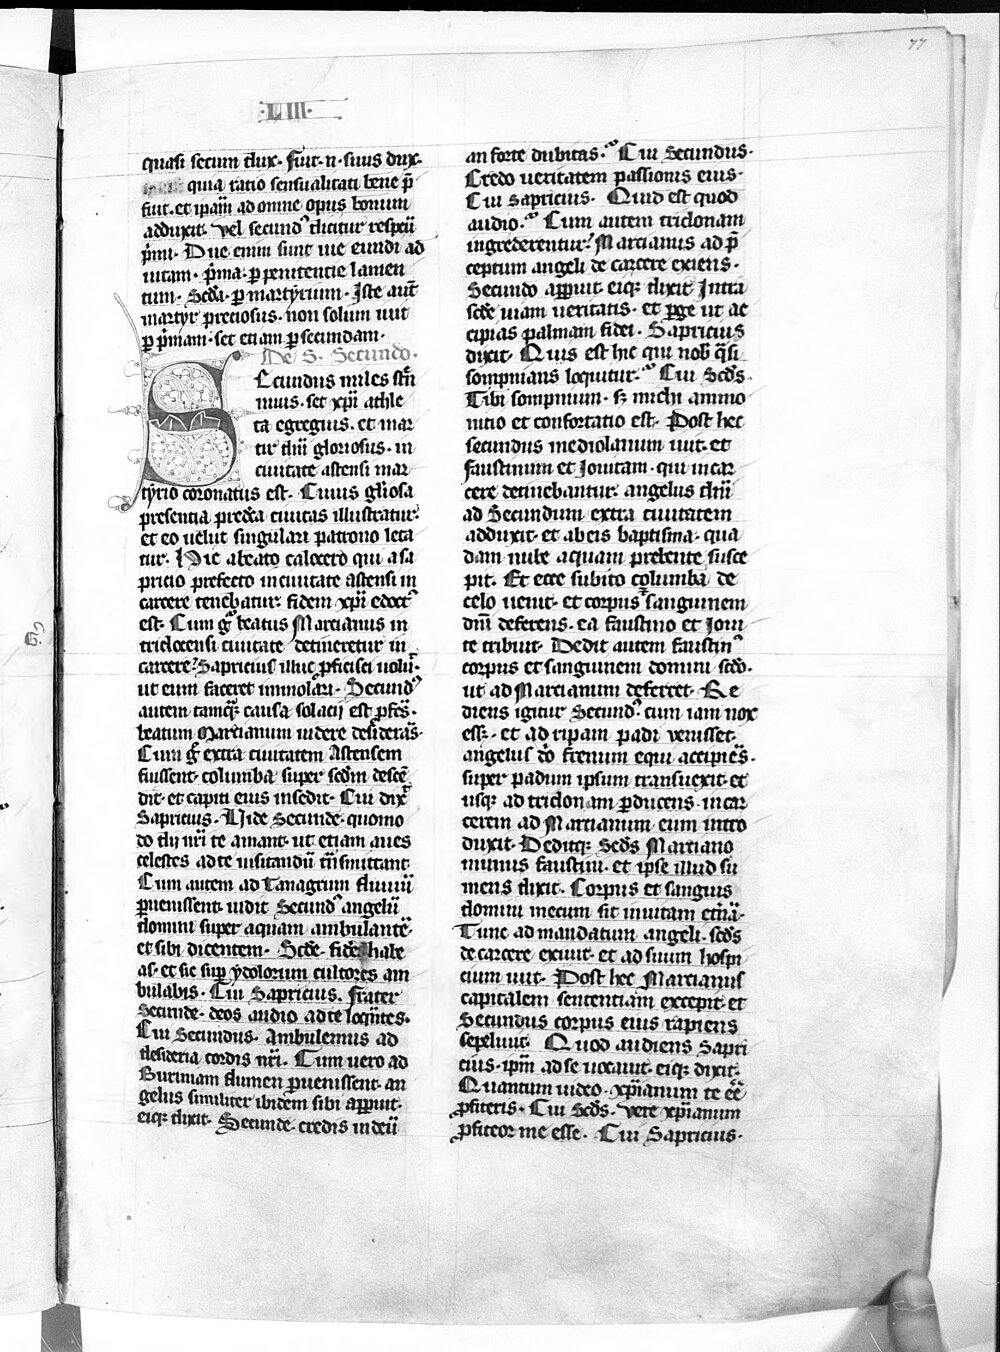 77
·LIII·
quasi secum dux. Fuit .n. suus dux.
quia ratio sensualitati bene p̄
fuit. et ip̄am ad omne opus bonum
adduxit. vel secundꝰ dicitur respc̄u
p̄mi. Due enim sunt uie eundi ad
uitam. p̄ma. ꝑ penitencie lamen
tum. Sc̄da. ꝑ martyrium. Iste aūt
martyr preciosus. non solum iuit
ꝑ p̄mam. set etiam ꝑ secundam.
De S. Secundo.
Secundus miles str̄e
nuus. set xp̄i athle
ta egregius. et mar
tir dn̄i gloriosus. in
ciuitate astensi mar
tyrio coronatus est. Cuius gl̄iosa
presentia predc̄a ciuitas illustratur.
et eo uelut singulari patrono leta
tur. Hic abeato calocero qui a sa
pricio prefecto in ciuitate astensi in
carcere tenebatur. fidem xp̄i edoctꝰ
est. Cum gͦ beatus Marcianus in
tridocensi ciuitate detineretur in
carcere. Sapricius illuc ꝓficisci uoluit.
ut eum faceret immolari. Secundꝰ
autem tamqꝫ causa solacij est ꝓfc̄s.
beatum Marcianum uidere desiderās.
Cum gͦ extra ciuitatem Astensem
fuissent. columba super scd̄m descē
dit. et capiti eius insedit. Cui dix̄
Sapricius. Vide Secunde. quomo
do dij nr̄i te amant. ut etiam aues
celestes ad te uisitandū tn̄smittant.
Cum autem ad Tanagrum fluuiū
ꝑuenissent. uidit Secundꝰ angelū
domini super aquam ambulantē.
et sibi dicentem. Sc̄de. fidē habe
as. et sic sup̄ ydolorum cultores am
bulabis. Cui Sapricius. Frater
Secunde. deos audio ad te loqn̄tes.
Cui Secundus. Ambulemus ad
desideria cordis nr̄i. Cum uero ad
Burinam flumen ꝑuenissent. an
gelus similiter ibidem sibi apparuit.
eiqꝫ dixit. Secunde. credis in deū
an forte dubitas. Cui Secundus.
Credo ueritatem passionis eius.
Cui Sapricius. Quid est quod
audio. Cum autem tridonam
ingrederentur. Marcianus ad p̄
ceptum angeli de carcere exiens.
Secundo apparuit. eiqꝫ dixit. Intra
sc̄de uiam ueritatis. et ꝑge ut ac
cipias palmam fidei. Sapricius
dixit. Quis est hic qui nob̄ q̄si
sompnians loquitur. Cui Sc̄ds.
Tibi sompnium. sꝫ michi ammo
nitio et confortatio est. Post hec
secundus mediolanum iuit. et
faustinum et Iouitam. qui incar
cere detinebantur. angelus dn̄i
ad Secundum extra ciuitatem
adduxit. et ab eis baptisma. qua
dam nube aquam prebente susce
pit. Et ecce subito columba de
celo uenit. et corpus ⁊ sanguinem
dn̄i deferens. ea faustino et Ioui
te tribuit. Dedit autem faustinꝰ
corpus et sanguinem domini sc̄do.
ut ad Marcianum deferret. Re
diens igitur Secundꝰ. cum iam nox
essꝫ. et ad ripam padi uenisset.
angelus dn̄i frenum equi accipiēs.
super padum ipsum transuexit. et
usqꝫ ad tridonam ꝑducens. in car
cerem ad Marcianum eum intro
duxit. Deditqꝫ Sc̄ds Marciano
munus faustini. et ipse illud su
mens dixit. Corpus et sanguis
domini mecum sit in uitam etn̄ā.
Tunc ad mandatum angeli. sc̄ds
de carcere exiuit. et ad suum hospi
cium iuit. Post hec Marcianus
capitalem sententiam excepit. et
Secundus corpus eius rapiens
sepeliuit. Quod audiens Sapri
cius. ip̄m ad se uocauit. eiqꝫ dixit.
Quantum uideo. xp̄ianum te eē
ꝓfiteris. Cui Sc̄ds. Vere xp̄ianum
ꝓfiteor me esse. Cui Sapricius.